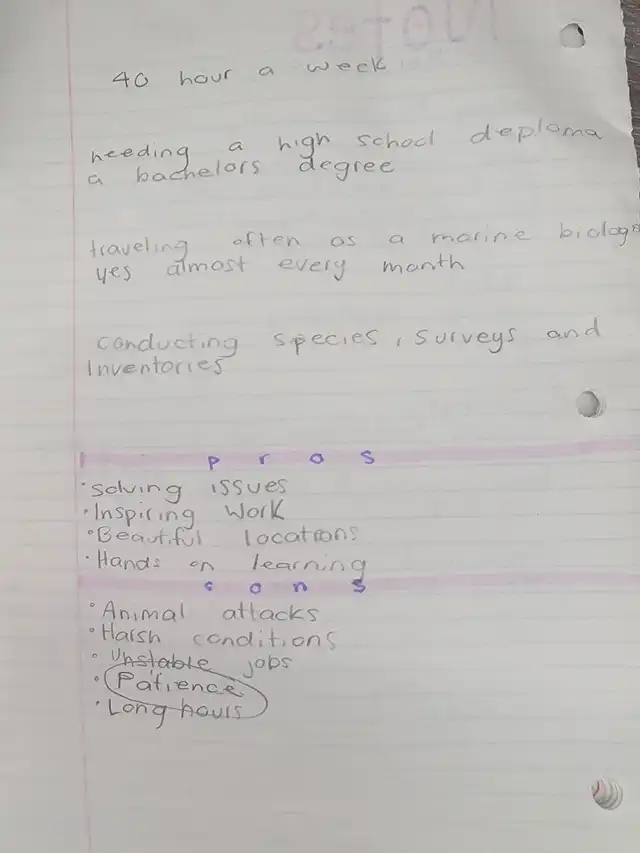 Notes
40 hour a week
needing a high school deploma
a bachelors degree
traveling often as a marine biolog
yes almost every month
conducting species, surveys and
Inventories
pros
·solving issues
·Inspiring work
·Beautiful locations
·Hands on learning
cons
·Animal attacks
·Harsh conditions
·Unstable jobs
·Patience
·Long hours